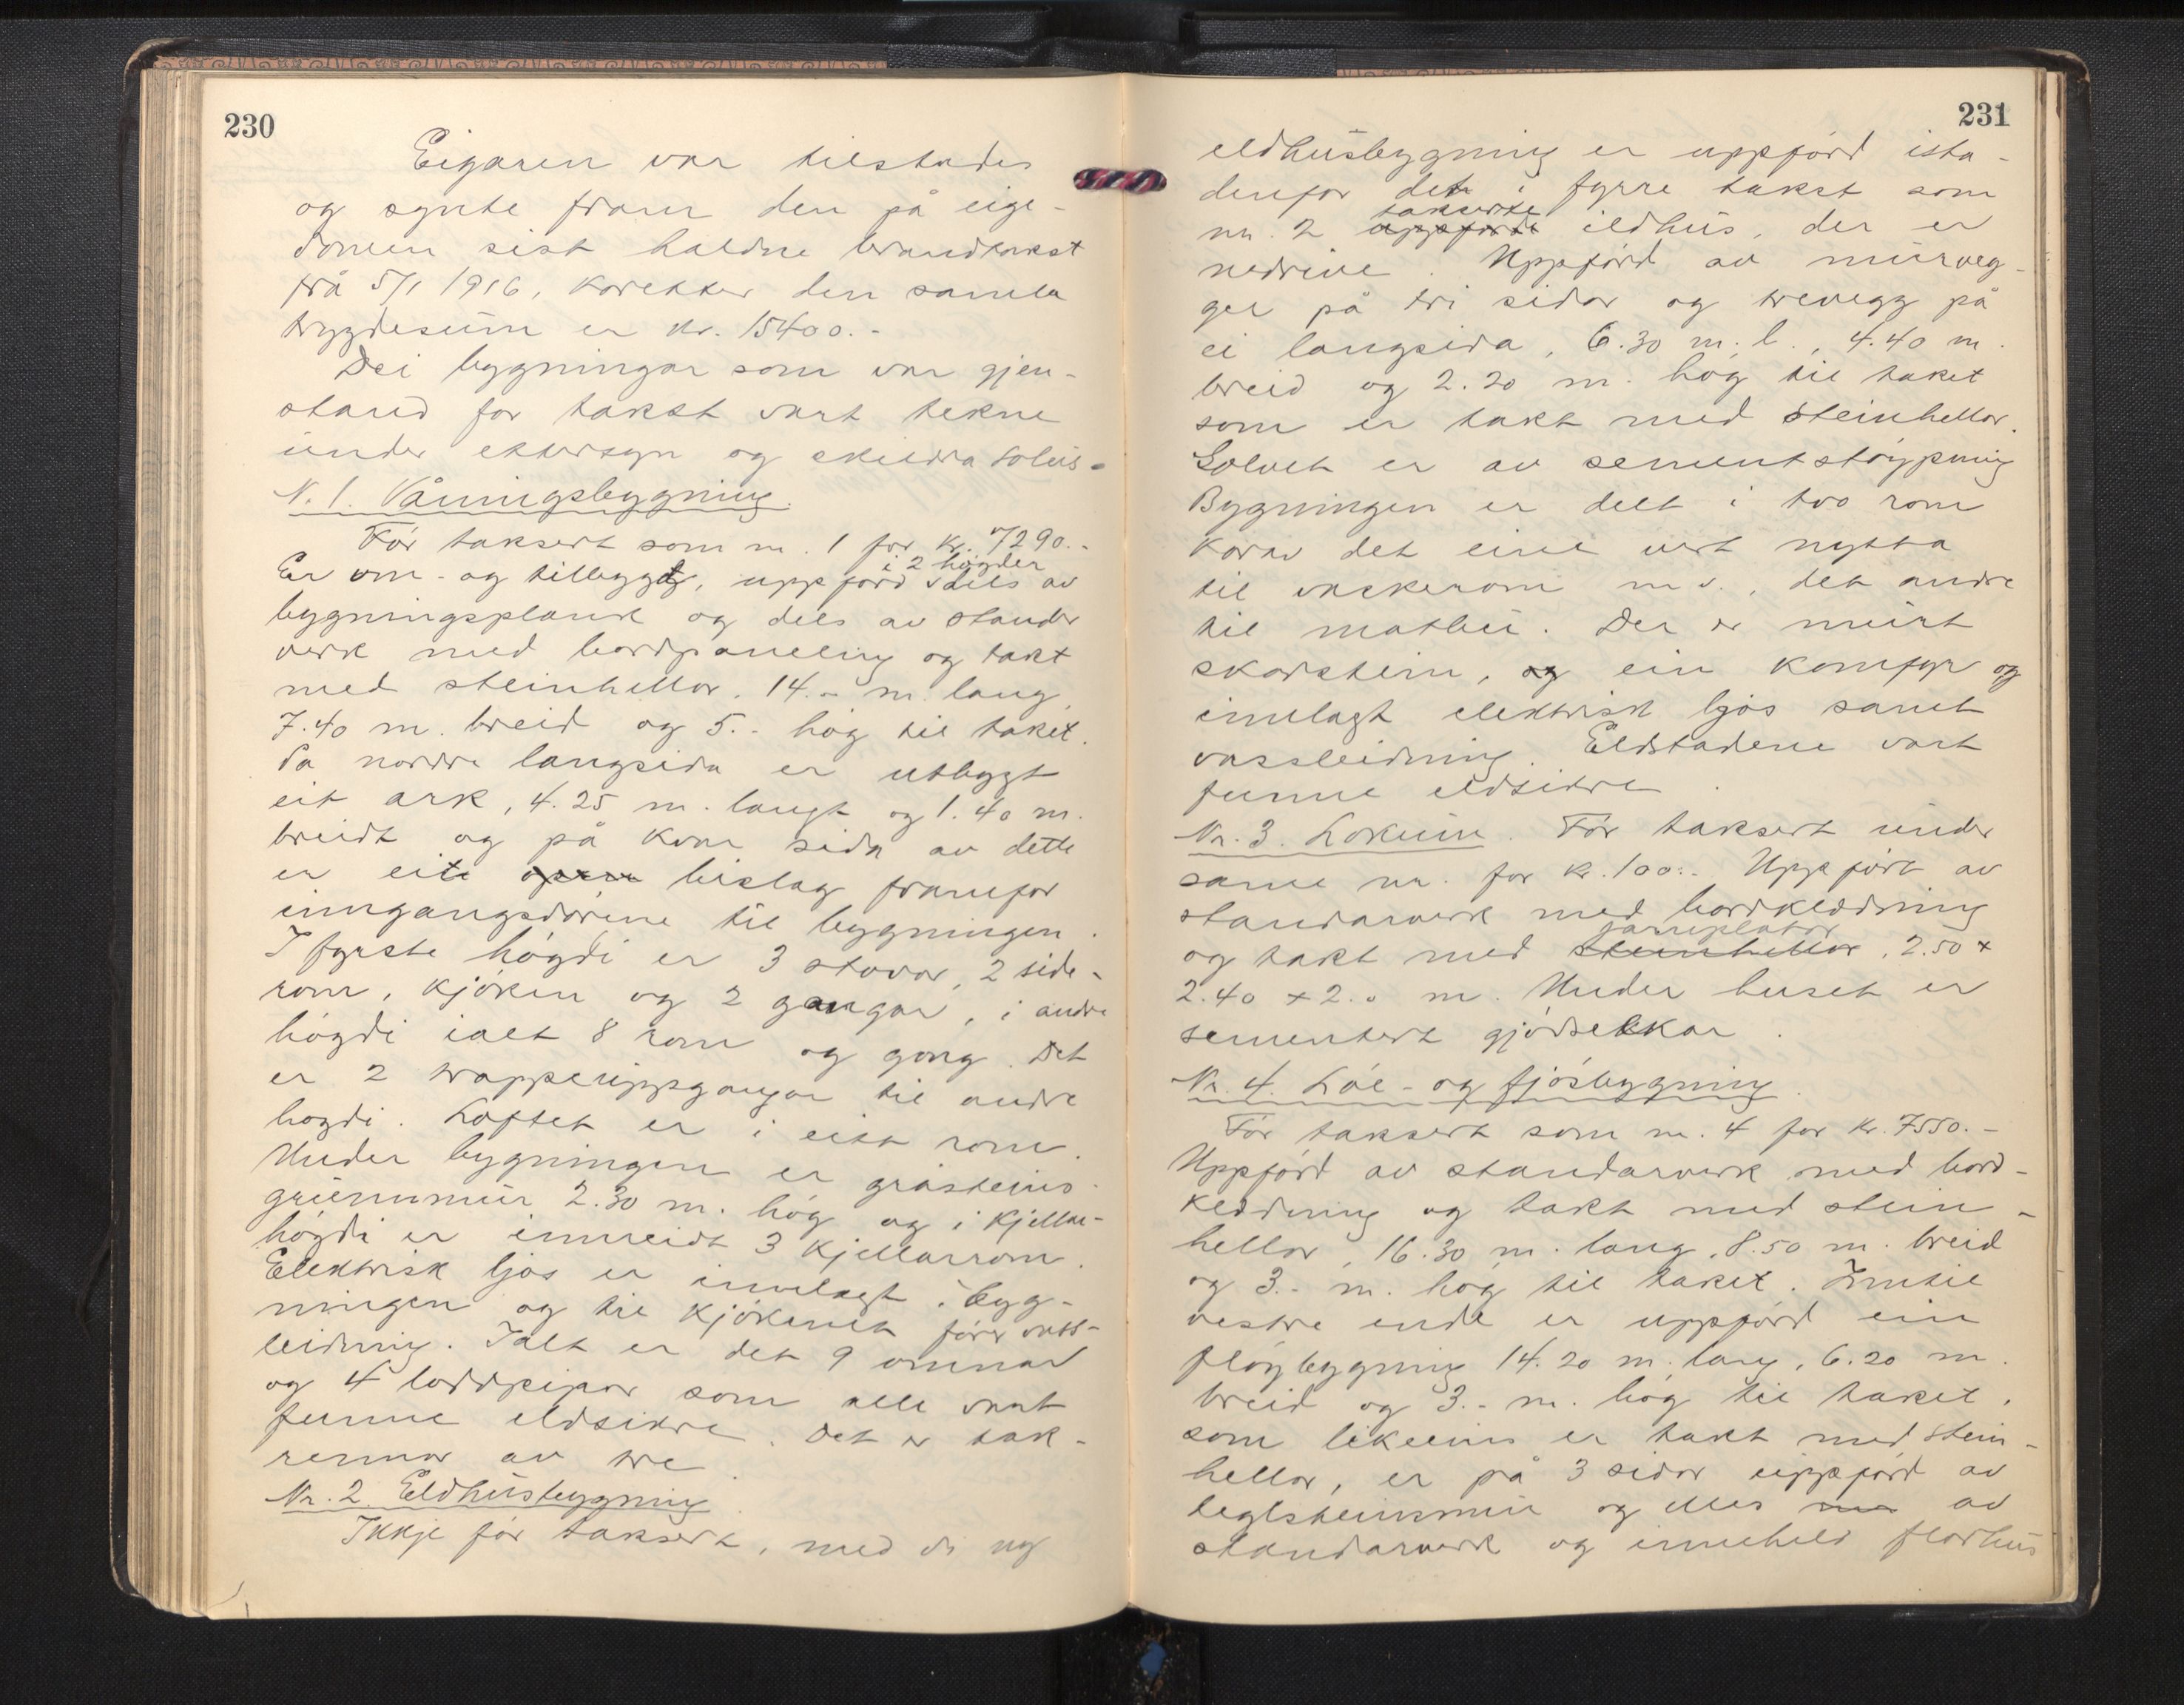 230
Eigaren var tilstades
og synte fram den på eige-
domen sist haldne brandtakst
frå 5/1 1916, koretter den samla
trygdesum er kr. 15400.-
Dei bygningar som var gjen-
stand for takst vart tekne
under ettersyn og skildra soleis-
N. 1. Våningsbygning.
Før taksert som nr. 1 for kr. 7290.-
i 2 högder
Er om- og tilbygd, uppförd dels av
bygningsplank og dels av stander
verk med bordpaneling og takt
med steinhellor. 14.- m. lang,
7.40 m. breid og 5.- høg til taket.
Pa nordre langsida er utbygt
eit ark, 4.25 m. langt og 1.40 m.
breidt og på kvar sida av dette
er eit bislag framfor
inngangsdörene til bygningen.
I fyrste högdi er 3 stovor, 2 side-
rom, kjöken og 2 gangar, i andre
högdi ialt 8 rom og gong. Det
er 2 trappeuppgangar til andre
hogdi. Loftet er i eitt rom.
Under bygningen er gråsteins-
grunnmur 2.30 m. høg og i kjellar-
högdi er innreidt 3 kjellarrom.
Elektrisk ljos er innlagt i byg-
ningen og til kjökenet förer vass-
leidning. Ialt er det 9 omnar
og 4 loddpipor som alle vart
funne eldsikre. Det er tak-
rennor av tre.
Nr. 2. Eldhusbygning
Ikkje för taksert, med di ny
231
eldhusbygning er uppförd ista-
denfor det i fyrre takst som
takserte
nr. 2 uppförde ildhus, der er
nedrive. Uppförd av murveg-
ger på tri sidor og trevegg på
ei langsida, 6.30 m. l., 4.40 m.
breid og 2.20 m. høg til taket
som er takt med steinhellor.
Golvet er av sementstöypning
Bygningen er delt i tvo rom
korav det eine vert nytta
til vaskerom m.v., det andre
til matbu. Der er murt
skorstein, og ein komfyr og
innlagt elektrisk ljos samt
vassleidning. Eldstadene vart
funne eldsikre.
Nr. 3. Lokum. Før taksert under
same nr. for kr. 100.- Uppfört av
standarverk med bordklædning
jarnplator
og takt med steinhellor, 2.50 x
2.40 x 2.0 m. Under huset er
sementert gjödselkar.
Nr. 4. Löe- og fjösbygning.
Før taksert som nr. 4 for kr. 7550.-
Uppförd av standarverk med bord-
kledning og takt med stein-
hellor, 16.30 m. lang, 8.50 m. breid
og 3.- m. høg til taket. Inntil
vestre ende er uppförd ein
flöybygning 14.20 m. lang, 6.20 m.
breid og 3.- m. høg til taket,
som likeeins er takt med stein-
hellor, er på 3 sidor uppförd av
teglsteinmur og elles av
standarverk og inneheld florhus